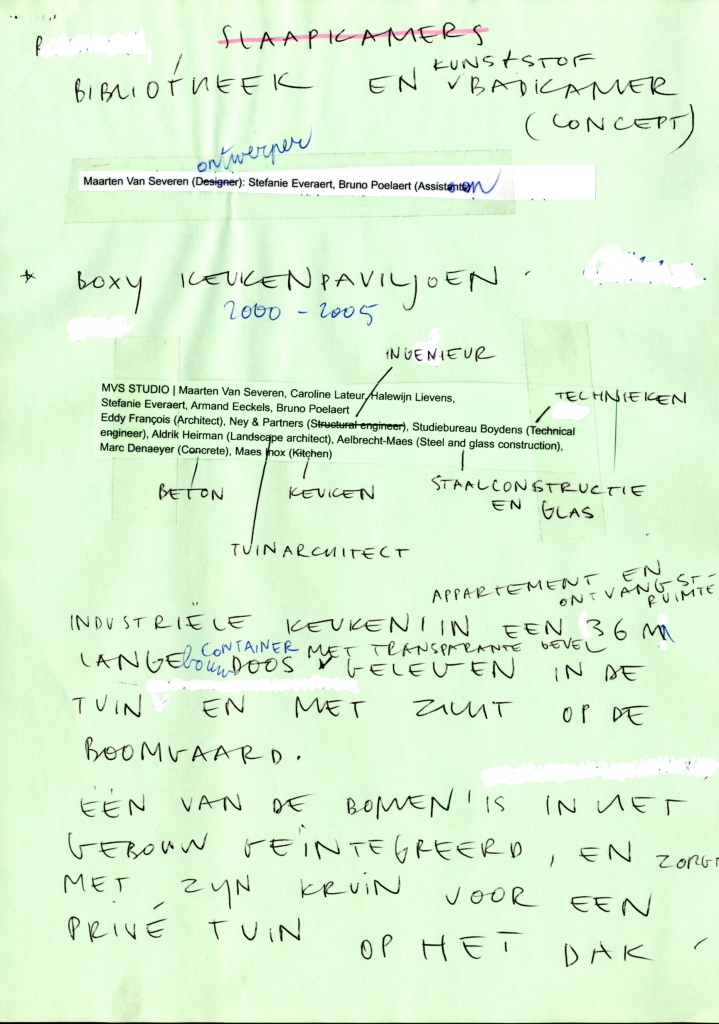 SLAAPKAMERS
KUNSTSTOF
BIBLIOTHEEK EN BADKAMER
(CONCEPT)
ontwerper
Maarten Van Severen (Designer): Stefanie Everaert, Bruno Poelaert (Assistants)
* BOXY KEUKENPAVILJOEN
2000 - 2005
INGENIEUR
MVS STUDIO | Maarten Van Severen, Caroline Lateur, Halewijn Lievens,
TECHNIEKEN
Stefanie Everaert, Armand Eeckels, Bruno Poelaert
Eddy François (Architect), Ney & Partners (Structural engineer), Studiebureau Boydens (Technical
engineer), Aldrik Heirman (Landscape architect), Aelbrecht-Maes (Steel and glass construction),
Marc Denaeyer (Concrete), Maes Inox (Kitchen)
BETON KEUKEN STAALCONSTRUCTIE
EN GLAS
TUINARCHITECT
APPARTEMENT EN
ONTVANGST-
RUIMTE
INDUSTRIËLE KEUKEN IN EEN 36 M
CONTAINER MET TRANSPARANTE GEVEL
LANGE bouw DOOS GELEGEN IN DE
TUIN EN MET ZICHT OP DE
BOOMGAARD.
ÉÉN VAN DE BOMEN IS IN HET
GEBOUW GEÏNTEGREERD, EN ZORGT
MET ZIJN KRUIN VOOR EEN
PRIVÉ TUIN OP HET DAK